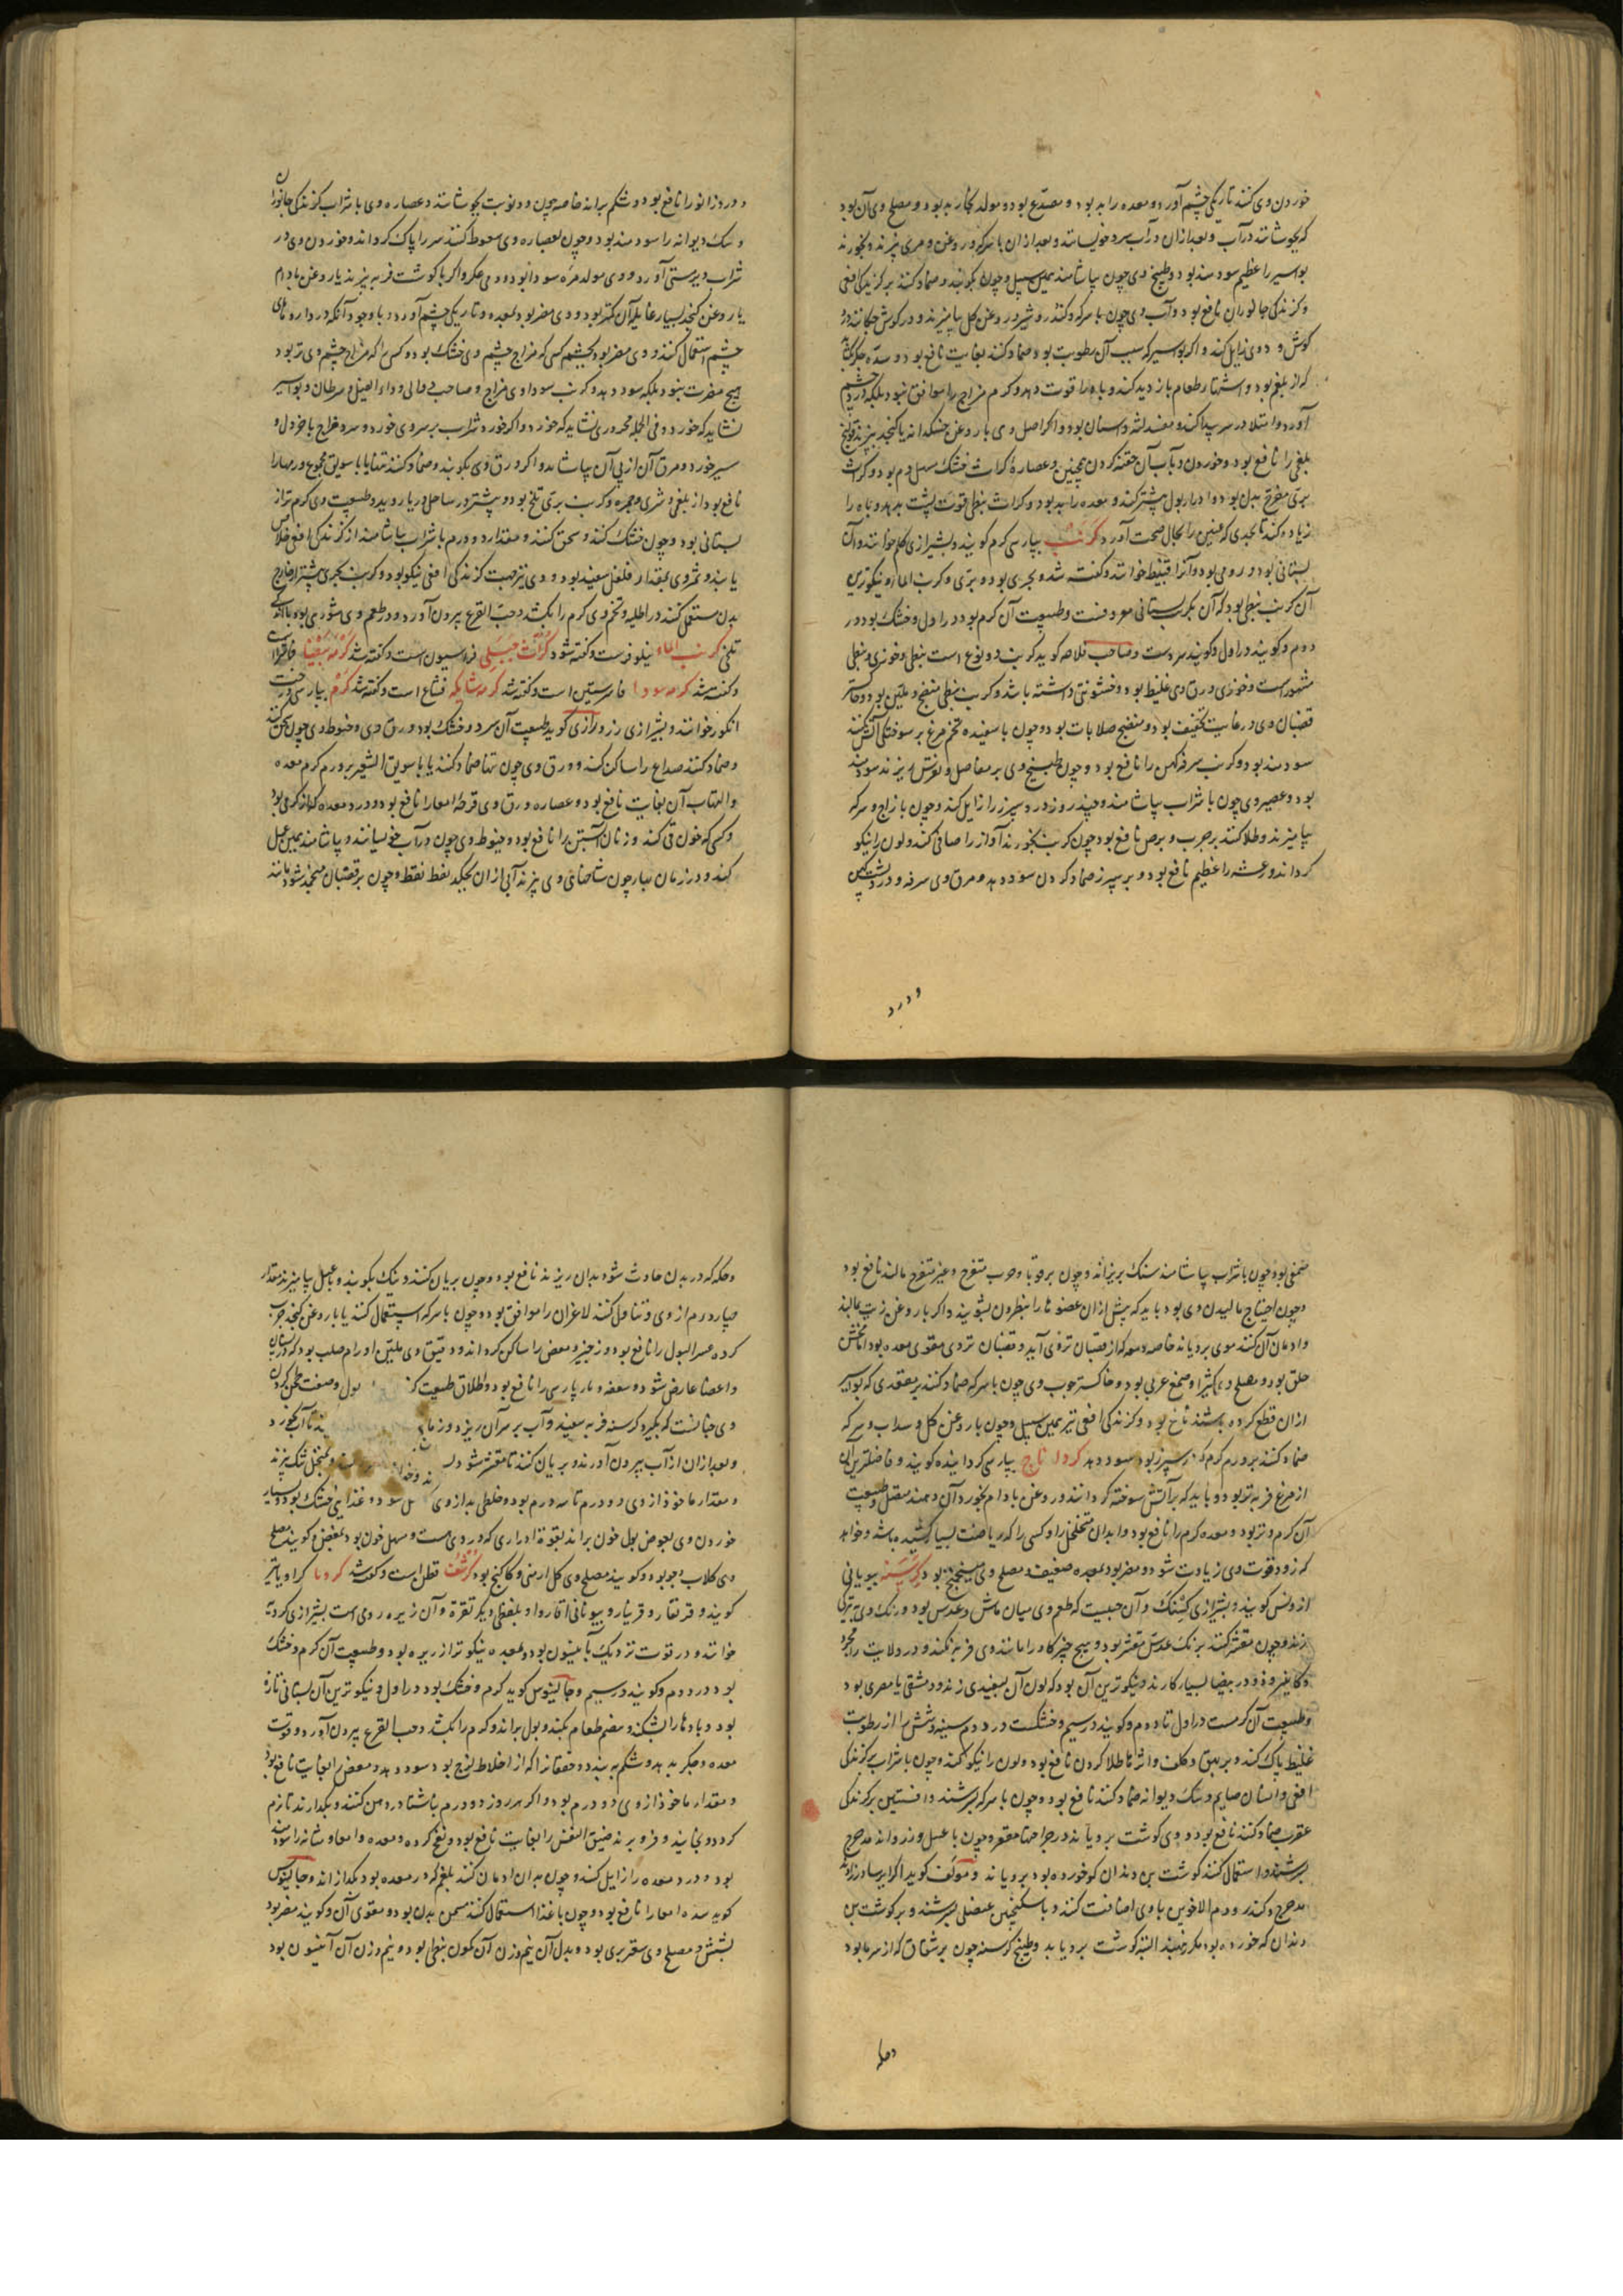 خوردن وی کند تاریکی چشم آورد و معده را بد بود و مصدع بود و مولد بخار بد بود و مصلح وی آن بود
که بجوشانند در آب و بعد ازان در آب سرد خویسانند و بعد ازان با سرکه و روغن و مری پزند و بخورند
بواسیر را عظیم سودمند بود و طبیخ وی چون بیاشامند همین سبیل و چون بکوبند و ضماد کنند بر گزیدگی افعی
و گزندگی جانوران نافع بود و آب وی چون با سرکه و کندر و شیر و روغن گل بیامیزند و در گوش چکانند درد
گوش و دوی زایل کند و اگر بواسیر که سبب آن رطوبت بود ضماد کنند بغایت نافع بود و سده جگر بگشاید
که از بلغم بود و اشتهاء طعام بازدید کند و باه را قوت دهد و گرم مزاج را موافق نبود بلکه درد چشم
آورد و امتلا در سر پیدا کند و مفسد لثه و اسنان بود و اگر اصل وی با روغن خسکدانه یا کنجد بپزند قولنج
بلغمی را نافع بود و خوردن و بآب آن حقنه کردن همچنین و عصاره کراث خشک مسهل دم بود و کراث
بری مقرح بدن بود و ادرار بول بیشتر کند و معده را بد بود و کراث نبطی قوت پشت بدهد و باه را
زیاده کند تا بحدی که عنین را بحال صحت آورد کرنب بپارسی کرم گویند و بشیرازی کلم خوانند و آن
بستانی بود و رومی بود و آنرا قنبیط خوانند و گفته شد و بحری بود و بری و کرنب الماء و نیکوترین
آن کرنب نبطی بود که آن کرنب بستانی معروفست و طبیعت آن گرم بود در اول و خشک بود در
دوم و گویند در اول و گویند سردست و صاحب فلاحه گوید کرنب دو نوع است نبطی و خوزی و نبطی
مشهور است و خوزی ورق وی غلیظ بود و خشونتی داشته باشد و کرنب نبطی منضج و ملین بود و خاکستر
قضبان وی در غایت تجفیف بود و منضج صلابات بود و چون با سفیده تخم مرغ بر سوختگی آتش کنند
سودمند بود و کرنب سرفه کهن را نافع بود و چون طبیخ وی بر مفاصل و نقرس ریزند سودمند
بود و عصیر وی چون با شراب بیاشامند و چند روز درد سپرز را زایل کند و چون با زاج و سرکه
بیامیزند و طلا کنند بر جرب و برص نافع بود چون کرنب بخورند آواز را صافی کند و لون را نیکو
گرداند و رعشه را عظیم نافع بود و بر سپرز ضماد کردن سود دهد و مرق وی سرفه و درد پشت کهن
و درد
و درد زانو را نافع بود و شکم براند خاصه چون دو نوبت بجوشانند و عصاره وی با شراب گزندگی جانوران
و سگ دیوانه را سودمند بود و چون بعصاره وی سعوط کنند سر را پاک گرداند و خوردن وی در
شراب دیر مستی آورد و وی مولد مره سودا بود و دم عکر و اگر با گوشت فربه پزند یا روغن بادام
یا روغن کنجد بسیار غایله آن کمتر بود و وی مضر بود بمعده و تاریکی چشم آورد و با وجود آنکه در داروهای
چشم استعمال کنند و وی مضر بود بچشم کسی که مزاج چشم وی خشک بود و کسی را که مزاج چشم وی تر بود
هیچ مضرت نبود بلکه سود دهد و کرنب سوداوی مزاج و صاحب دوالی و داء الفیل و سرطان و بواسیر
نشاید که خورد و فی الجمله محروری نشاید که خورد و اگر خورد شراب بر سر وی خورد و سرد مزاج با خردل و
سیر خورد و مرق آن از پی آن بیاشامد و اگر ورق وی بکوبند و ضماد کنند تنها یا با سویق مجموع ورمها را
نافع بود از بلغمی و شری و جمره و کرنب بری تلخ بود و بیشتر در ساحل دریا روید و طبیعت وی گرم تر از
بستانی بود و چون خشک کنند و سحق کنند و مقدار دو درم با شراب بیاشامند از گزندگی افعی خلاص
یابند و ثمر وی بمقدار فلفل سفید بود و وی نیز جهت گزندگی افعی نیکو بود و کرنب بحری بیشتر در خارج
بدن مستعمل کنند در اطلیه و تخم وی کرم را بکشد و حب القرع بیرون آورد و در طعم وی شوری بود با اندک
تلخی کرنب الماء نیلوفرست و گفته شود کراث جبلی فراسیون است و گفته شد کرمه بیضا فاشراست
و گفته شد کرمه سودا فاشرستین است و گفته شد کرمه شایکه فشاغ است و گفته شد کرم بپارسی درخت
انگور خوانند و بشیرازی رز و رازی گوید طبیعت آن سرد و خشک بود و ورق وی و خیوط وی چون سحق کنند
و ضماد کنند صداع را ساکن کند و ورق وی چون تنها ضماد کنند یا با سویق الشعیر بر ورم گرم معده
و التهاب آن بغایت نافع بود و عصاره ورق وی قرحه امعا را نافع بود و درد معده که از گرمی بود
و کسی که خون قی کند و زنان آبستن را نافع بود و خیوط وی چون در آب خویسانند و بیاشامند همین عمل
کند و در زمان بهار چون شاخهای وی ببرند آبی از ان بچکد نقط نقط و چون بر قضبان منجمد شود مانند
صمغی بود چون با شراب بیاشامند سنگ بریزاند و چون بر قوبا و جرب متقرح و غیر متقرح مالند نافع بود
و چون احتیاج مالیدن وی بود باید که پیش از ان عضو ها را بنطرون بشویند و اگر با روغن زیت بمالند
و ادمان آن کنند موی برویاند خاصه دمعه که از قضبان تر وی آید و قضبان تر وی مقوی معده بود اما مخشن
حلق بود و مصلح وی کثیرا و صمغ عربی بود و خاکستر چوب وی چون با سرکه ضماد کنند بر مقعدی که بواسیر
ازان قطع کرده باشند نافع بود و گزندگی افعی نیز همین سبیل و چون با روغن گل و سداب و سرکه
ضماد کنند بر ورم گرم که در سپرز بود سود دهد کردناج بپارسی گردانیده گویند و فاضلترین آن
از مرغ فربه تر بود و باید که بر آتش سوخته گردانند و روغن بادام بخورد آن دهند متصل و طبیعت
آن گرم و تر بود و معده گرم را نافع بود و ابدان متخلخل را و کسی را که ریاضت بسیار کشیده باشد و خواهد
که زود قوت وی زیادت شود و مضر بود بمعده ضعیف و مصلح وی میبختج بود کرسنه بیونانی
اروبس گویند و بشیرازی کشنک و آن حبیست که طعم وی میان ماش و عدس بود و رنگ وی بتیرگی
زند و چون مقشر کنند برنگ عدس مقشر بود و هیچ چیز گاو را مانند وی فربه نکند و در ولایت رامجرد
و کازرون و در بیضا بسیار کارند و نیکوترین آن بود که لون آن بسفیدی زند و دمشقی یا مصری بود
و طبیعت آن گرمست در اول تا دوم و گویند در سیم و خشکست در دوم سینه و شش را از رطوبت
غلیظ پاک کند و بر بهق و کلف و اثرها طلا کردن نافع بود و لون را نیکو کند و چون با شراب بر گزندگی
افعی و انسان صایم و سگ دیوانه ضماد کنند نافع بود و چون با سرکه بسرشند و افسنتین بر گزندگی
عقرب ضماد کنند نافع بود و وی گوشت برویاند در جراحتهای مقعره چون با عسل و زراوند مدحرج
بسرشند و استعمال کنند گوشت بن دندان که خورده بود برویاند و مولف گوید اگر ایرسا و زراوند
مدحرج و کندر و دم الاخوین با وی اضافت کنند و با سکنجبین عنصلی بسرشند و بر گوشت بن
دندان که خورده بود مکرر نهند البته گوشت برویاند و طبیخ کرسنه چون بر شقاق که از سرما بود
و حکه
و حکه که در بدن حادث شود بدان ریزند نافع بود و چون بریان کنند و نیک بکوبند و با عسل بیامیزند مقدار
چهار درم از وی و تناول کنند لاغران را موافق بود و چون با سرکه استعمال کنند یا با روغن کنجد چرب
کرده عسر البول را نافع بود و زحیر و مغص را ساکن گرداند و دقیق وی ملین اورام صلب بود که در پستان
و اعضا عارض شود و سعفه و نار پارسی را نافع بود و اطلاق طبیعت کند بول و صنعت طحن کردن
وی چنانست که بگیرد کرسنه فربه سفید و آب بر سر آن ریزد و زمانی تا آب بخورد
و بعد ازان از آب بیرون آورند و بریان کنند تا مقشر شود و بمنخل تنگ بیزند
و مقدار ماخوذ از وی دو درم تا سه درم بود و خلطی بد از وی و غذایی خشک بود و بسیار
خوردن وی بعوض بول خون براند بقوة ادراری که در وی هست و مسهل خون بود بمغص و گویند مصلح
وی گلاب و جو بود و گویند مصلح وی گل ارمنی و کاکنج بود کرسف قطن است و گفته شد کرویا کراویا نیز
گویند و قرنقار و قرنبار و بیونانی اقاروا و بلفظی دیگر تقرة و آن زیره رومی است بشیرازی کرویه
خوانند و در قوت نزدیک بانیسون بود و بمعده نیکوتر از زیره بود و طبیعت آن گرم و خشک
بود در دوم و گویند در سیم و جالینوس گوید گرم و خشک بود در اول و نیکوترین آن بستانی تازه
بود و بادها را بشکند و هضم طعام بکند و بول براند و کرم را بکشد و حب القرع بیرون آورد و قوت
معده و جگر بدهد و شکم ببندد و خفقان را که از اخلاط لزج بود سود دهد و مغص را بغایت نافع بود
و مقدار ماخوذ از وی دو درم بود و اگر هر روز دو درم بناشتا در دهن کنند و بگذارند تا نرم
گردد و بخایند و فرو برند ضیق النفس را بغایت نافع بود و نفخ گرده و معده و امعا و مثانه را سودمند
بود و درد معده را زایل کند و چون بدان ادمان کنند بلغم که در معده بود بگدازاند و جالینوس
گوید سده امعا را نافع بود و چون با غذا استعمال کنند مسمن بدن بود و مقوی آن و گویند مضر بود
بشش و مصلح وی سعتر بری بود و بدل آن نیم وزن آن کمون نبطی بود و نیم وزن آن انیسون بود